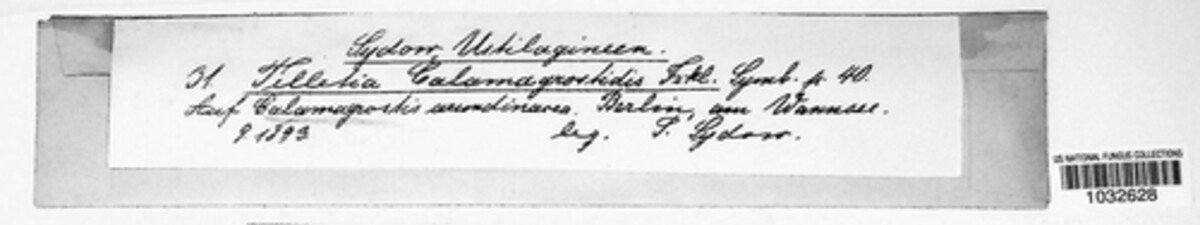 Sydow, Ustilagineen.
31. Tilletia Calamagrostidis Fckl. Symb. p. 40.
Auf Calamagrostis arundinacea. Berlin, am Wannsee.
9.1893 leg. P. Sydow.
US NATIONAL FUNGUS COLLECTIONS
1032628